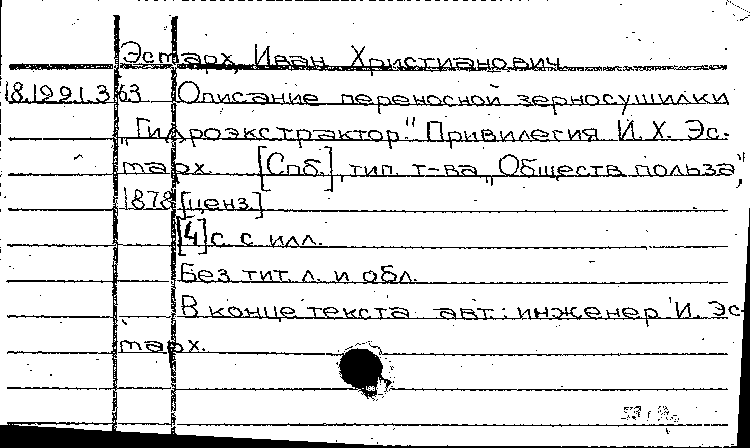 Эстарх, Иван Христианович
18.199.1.363 Описание переносной зерносушилки
„Гидроэкстрактор" Привилегия И. Х. Эс-
тарх. [Спб.], тип. т-ва „Обществ. польза",
1878 [ценз.]
[4] с. с илл.
Без тит. л. и обл.
В конце текста авт.: инженер И. Эс-
тарх.